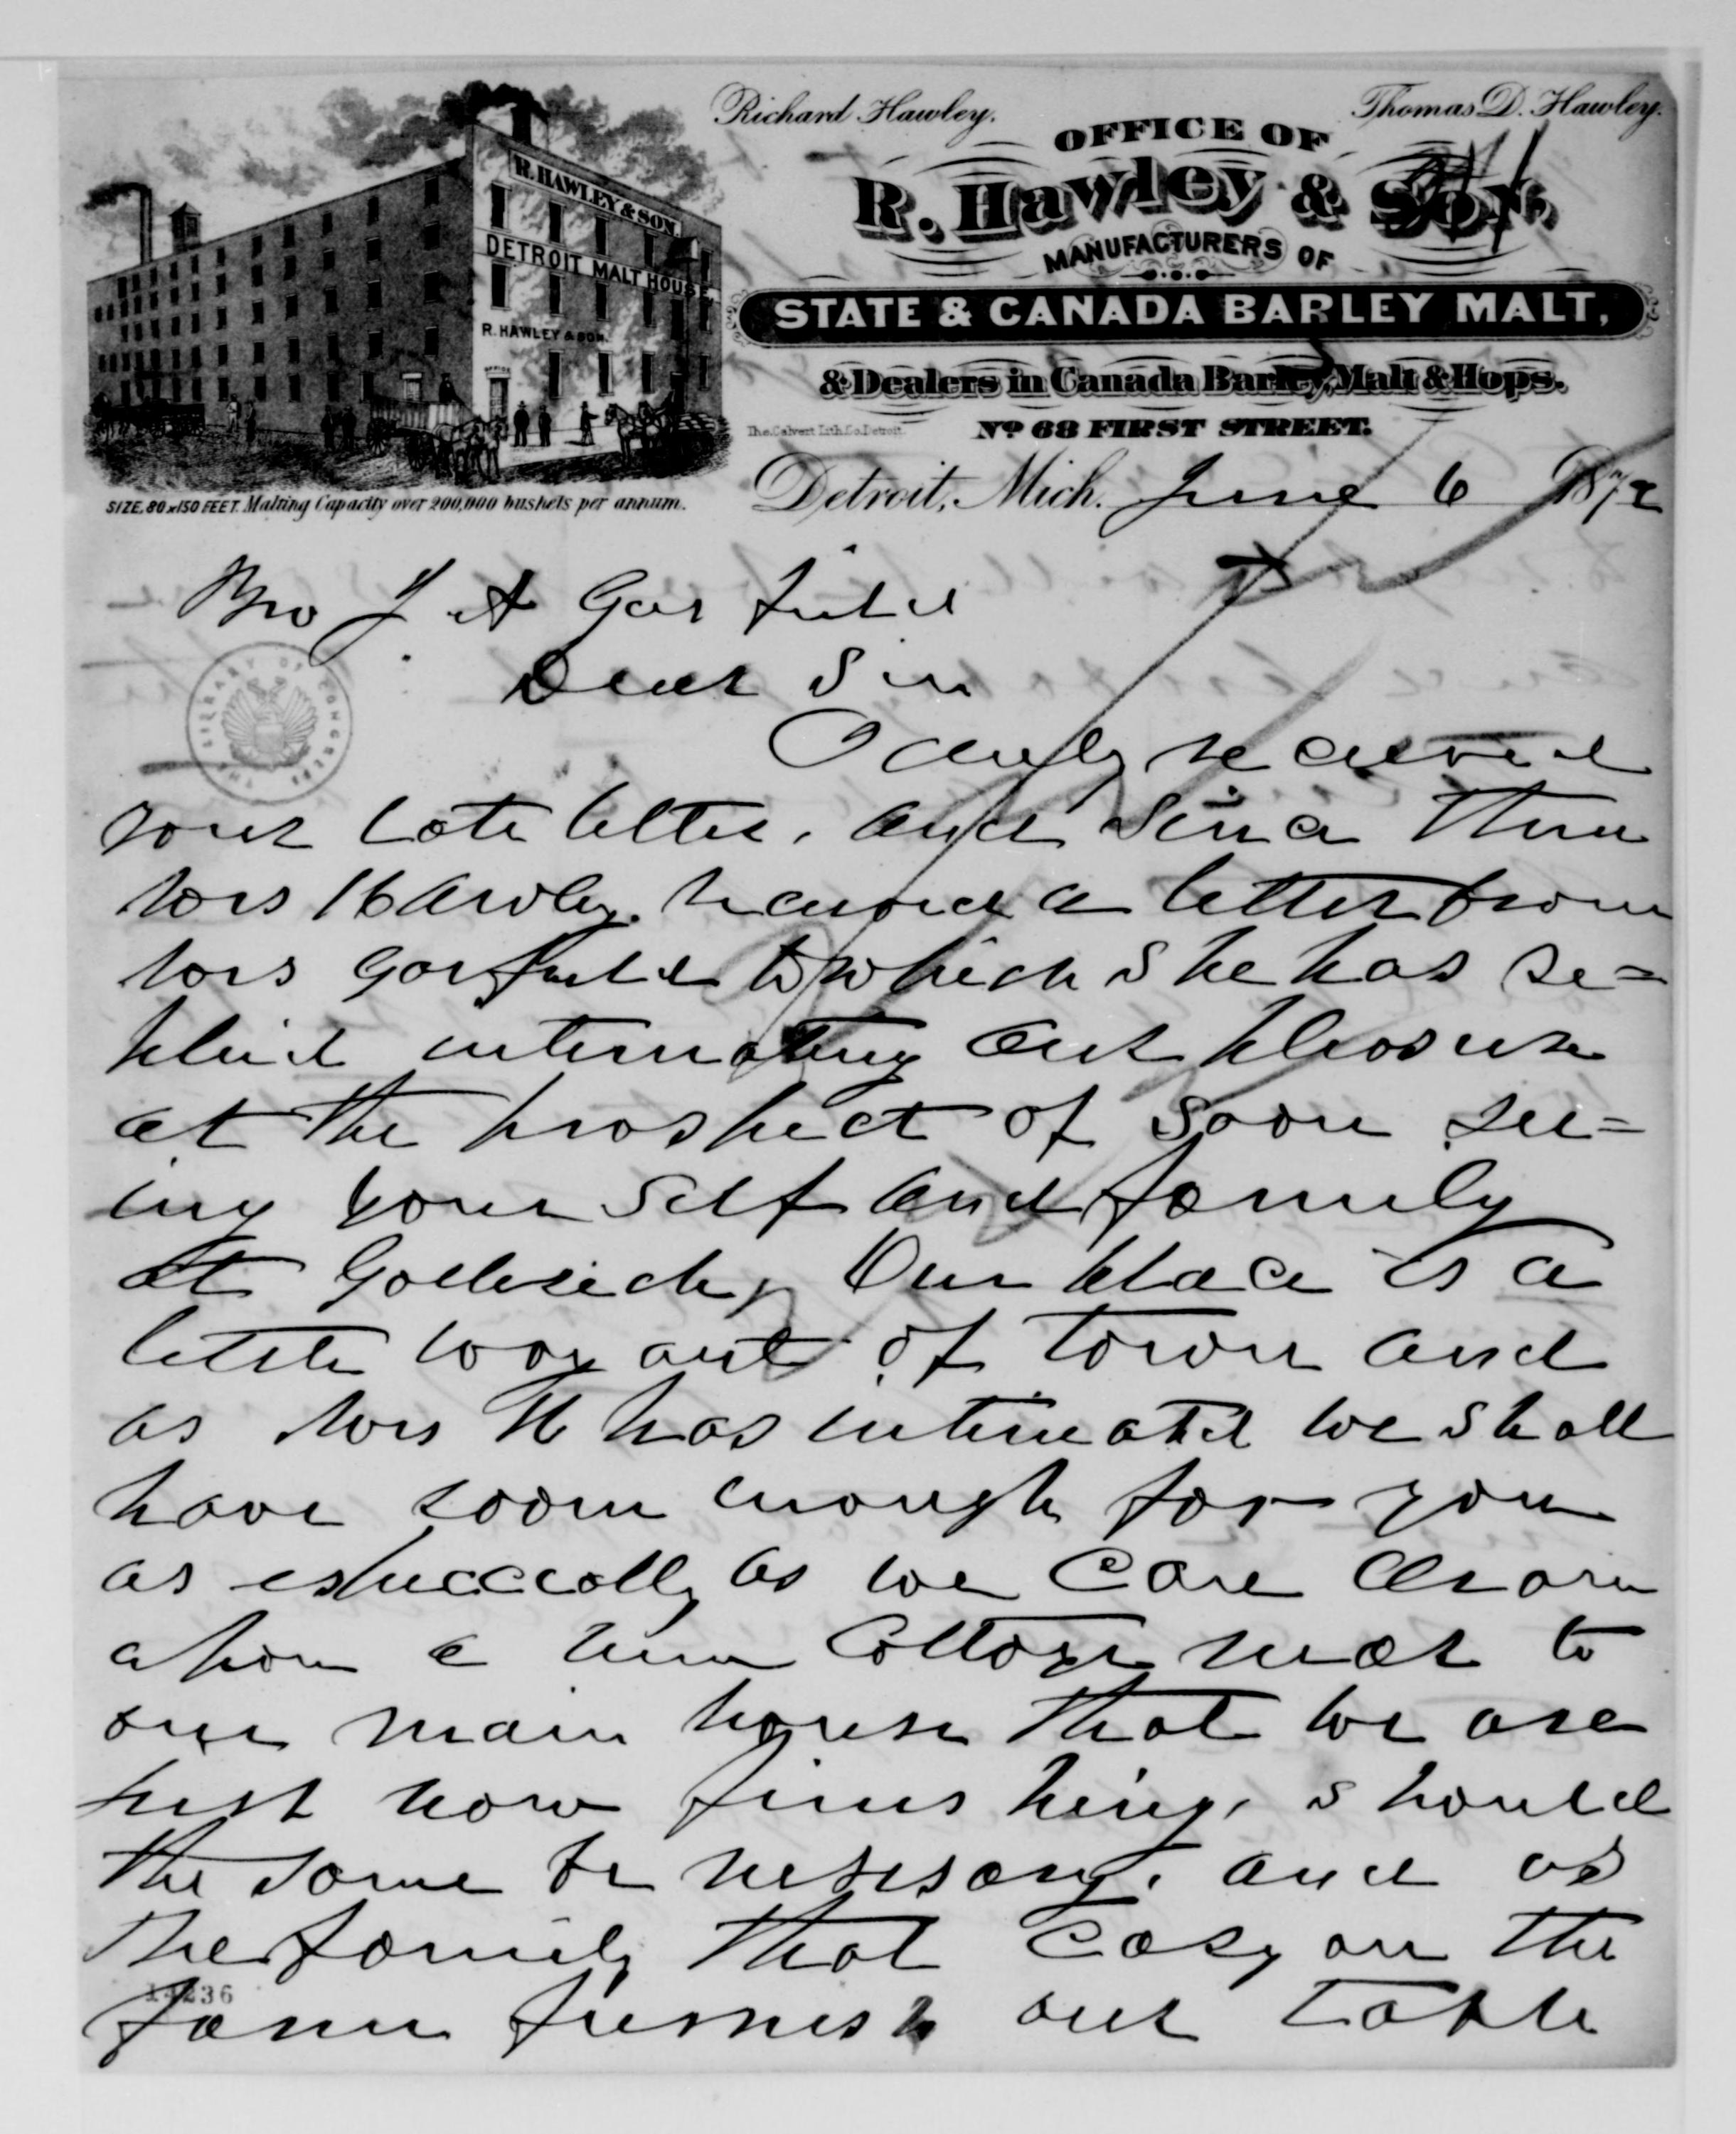 Richard Hawley. Thomas D. Hawley.
OFFICE OF
R. Hawley & Son,
MANUFACTURERS OF
STATE & CANADA BARLEY MALT,
& Dealers in Canada Barley, Malt & Hops.
No 68 FIRST STREET.
The Calvert Lith. Co. Detroit.
R. HAWLEY & SON.
DETROIT MALT HOUSE.
R. HAWLEY & SON.
OFFICE
SIZE, 80 x 150 FEET. Malting Capacity over 200,000 bushels per annum.
Detroit, Mich. June 6 1872
Bro J A Garfield
Dear Sir
I duly received
your late letter, and since then
Mrs Hawley received a letter from
Mrs Garfield to which she has re=
plied intimating our pleasure
at the prospect of soon see=
ing yourself and family
at Goderich, Our place is a
little way out of town and
as Mrs H has intimated we shall
have room enough for you
as especially as we can draw
upon a new Cottage near to
our main house that we are
just now finishing, should
the same be necessary. and as
the family that carry on the
farm furnish our table
THE LIBRARY OF CONGRESS
14236